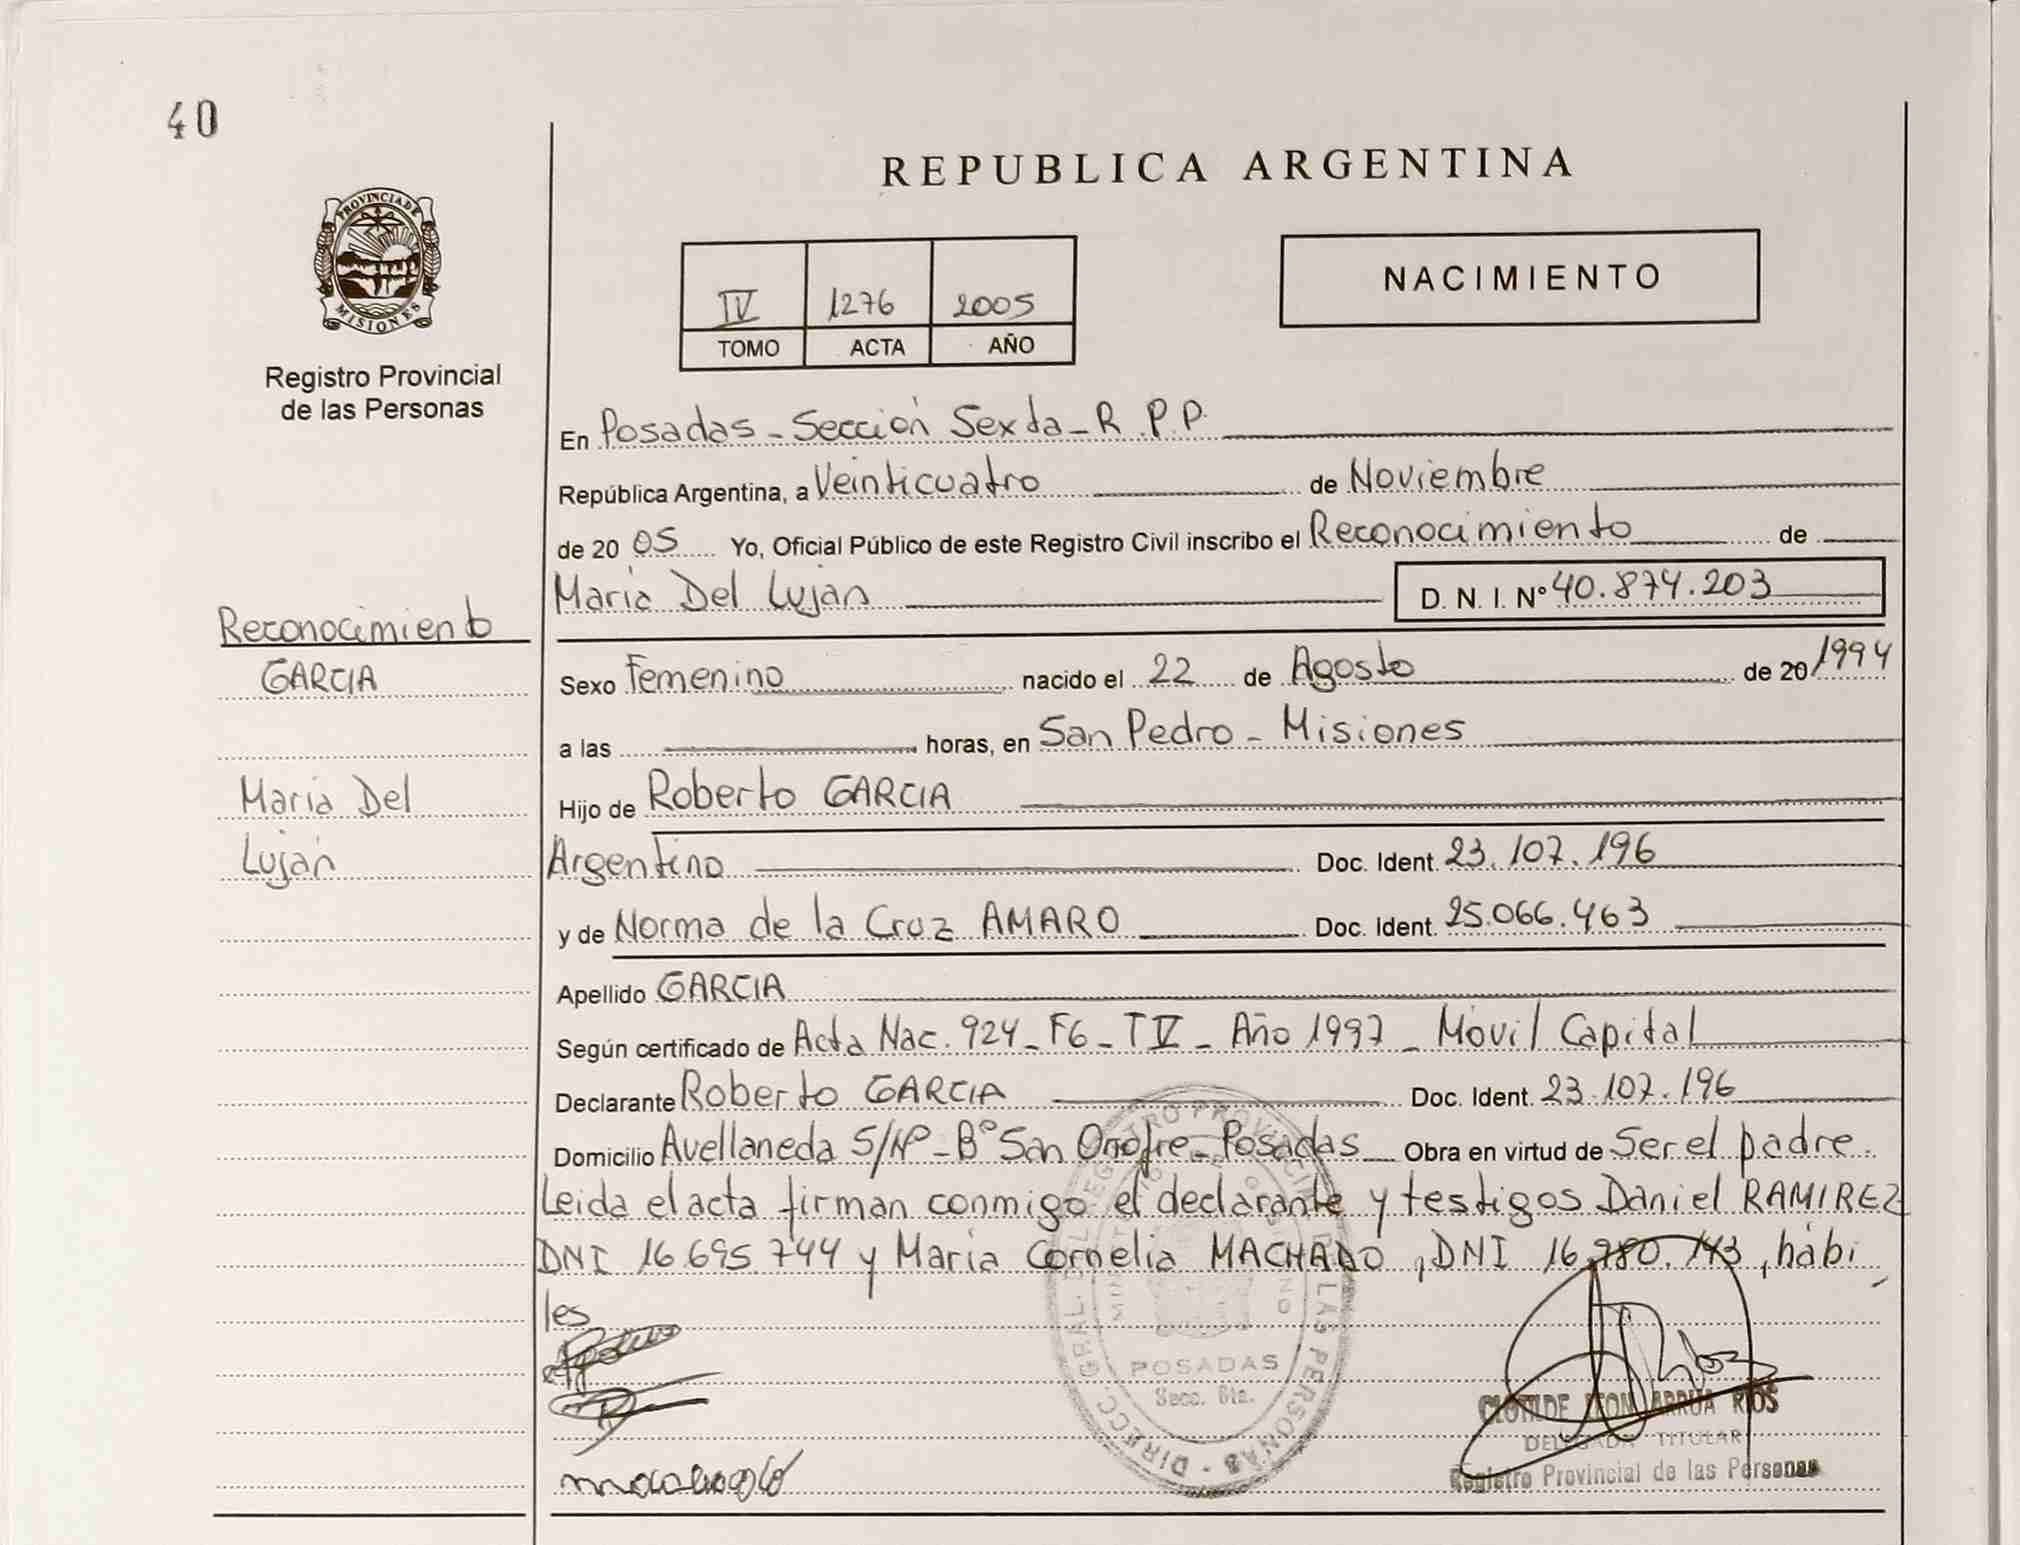 40
REPUBLICA ARGENTINA
PROVINCIA DE
MISIONES
Registro Provincial
de las Personas
IV 1276 2005
TOMO ACTA AÑO
NACIMIENTO
En Posadas - Sección Sexta - R.P.P.
República Argentina, a Veinticuatro de Noviembre
de 20 05 Yo, Oficial Público de este Registro Civil inscribo el Reconocimiento de
María Del Luján D. N. I. Nº 40.874.203
Reconocimiento
GARCIA
María Del
Luján
Sexo Femenino nacido el 22 de Agosto de 20 1994
a las horas, en San Pedro - Misiones
Hijo de Roberto GARCIA
Argentino Doc. Ident. 23.107.196
y de Norma de la Cruz AMARO Doc. Ident. 25.066.463
Apellido GARCIA
Según certificado de Acta Nac. 924 - F6 - T V - Año 1997 - Móvil Capital
Declarante Roberto GARCIA Doc. Ident. 23.107.196
Domicilio Avellaneda S/Nº - Bº San Onofre - Posadas Obra en virtud de Ser el padre.
Leida el acta firman conmigo el declarante y testigos Daniel RAMIREZ
DNI 16.695.744 y María Cornelia MACHADO, DNI 16.980.143, hábi
les
DIRECC. GRAL. DEL REGISTRO PROVINCIAL DE LAS PERSONAS
POSADAS
Secc. 6ta.
CLOTILDE LEON ARRUA RIOS
DELEGADA TITULAR
Registro Provincial de las Personas